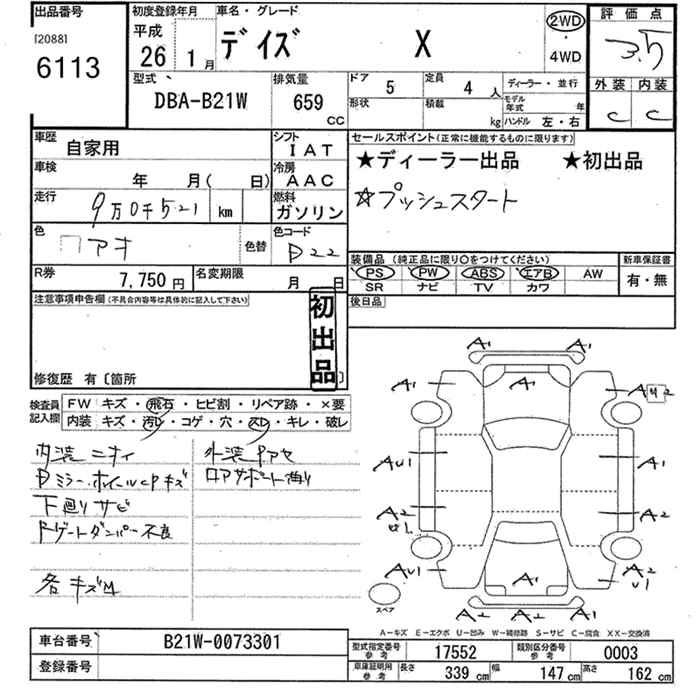 出品番号
[2088]
6113
初度登録年月
平成
26年 1月
車名・グレード
デイズ X
2WD
・
4WD
評価点
3.5
外装 内装
C C
型式
DBA-B21W
排気量
659 CC
ドア 5
定員 4人
形状
積載 kg
ディーラー・並行
モデル年式 年
ハンドル 左・右
車歴
自家用
シフト
IAT
車検
年 月( 日)
冷房
AAC
走行
9万0千521 km
燃料
ガソリン
色
色替
色コード
R券
7,750円
名変期限
月 日
セールスポイント(正常に機能するものに限ります)
★ディーラー出品 ★初出品
☆プッシュスタート
装備品(純正品に限り○をつけてください)
PS PW ABS エアB AW
SR ナビ TV カワ
新車保証書
有・無
後日品
注意事項申告欄(不具合内容等は具体的に記入して下さい)
初出品
修復歴 有〔箇所 〕
検査員記入欄
FW キズ・飛石・ヒビ割・リペア跡・×要
内装 キズ・汚レ・コゲ・穴・スレ・キレ・破レ
内装 ニオイ
外装
下廻りサビ
ダンパー不良
各キズ凹
A1 A1
A1 A1 A2
AU1 A1
A2 A2
AU1 A1 A2
U1
A2 A2 A2
スペア
A-キズ E-エクボ U-凹み W-補修跡 S-サビ C-腐食 XX-交換済
車台番号
B21W-0073301
登録番号
型式指定番号 参考
17552
類別区分番号 参考
0003
車庫証明用 参考
長さ 339cm 幅 147cm 高さ 162cm